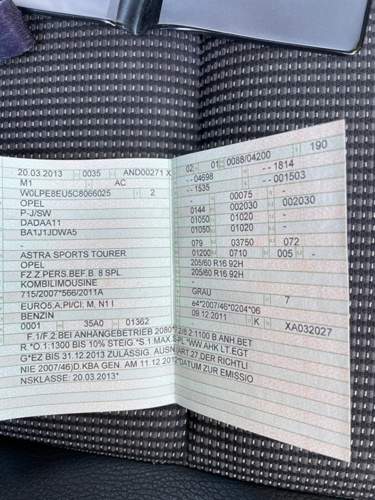 20.03.2013 0035 AND00271 X
M1 AC
W0LPE8EU5C8066025 2
OPEL
P-J/SW
DADAA11
BA1J1JDWA5
-
ASTRA SPORTS TOURER
OPEL
FZ.Z.PERS.BEF.B. 8 SPL.
KOMBILIMOUSINE
715/2007*566/2011A
EURO5,A,PI/CI, M, N1 I
BENZIN
0001 35A0 01362
02 01 0088/04200 190
--04698 --1814
--1535 --001503
- 00075 -
0144 002030 002030
01050 01020 -
01050 01020 -
079 03750 072
01200 0710 005 -
205/60 R16 92H
205/60 R16 92H
-
GRAU 7
e4*2007/46*0204*06
09.12.2011 K XA032027
F.1/F.2:BEI ANHÄNGEBETRIEB 2080*7.2/8.2:1100 B.ANH.BET
R.*O.1:1300 BIS 10% STEIG.*S.1 MAX.5PL.*WW AHK LT.EGT
G*EZ BIS 31.12.2013 ZULÄSSIG. AUSN.ART.27,DER RICHTLI
NIE 2007/46)D.KBA GEN. AM 11.12.2012*DATUM ZUR EMISSIO
NSKLASSE: 20.03.2013*